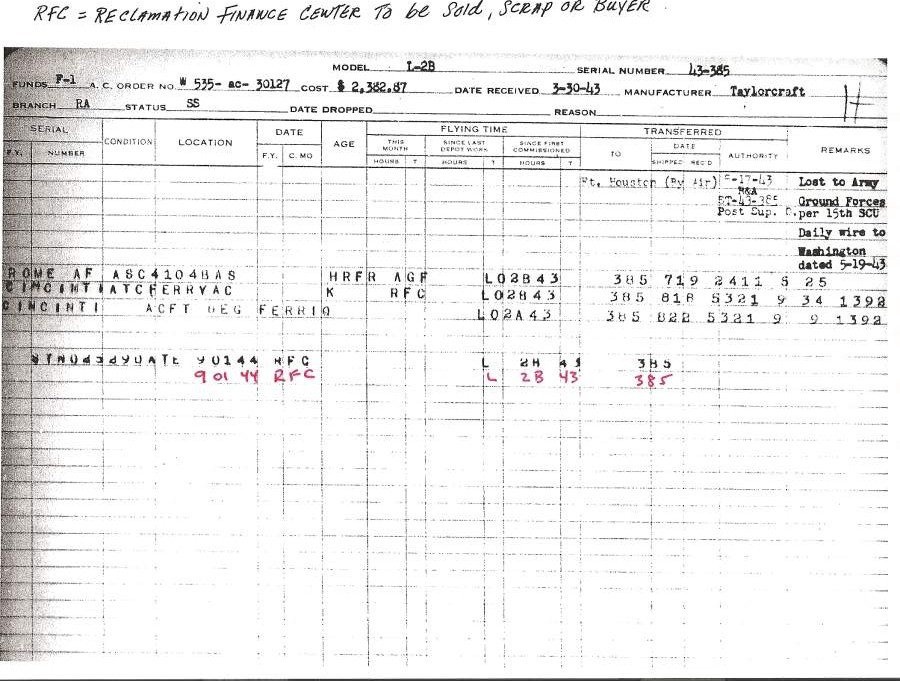 RFC = RECLAMATION FINANCE CENTER To be Sold, SCRAP OR BUYER.
MODEL L-2B SERIAL NUMBER 43-385
FUNDS F-1 A. C. ORDER NO. W 535- ac- 30127 COST $ 2,382.87 DATE RECEIVED 3-30-43 MANUFACTURER Taylorcraft
BRANCH RA STATUS SS DATE DROPPED REASON
SERIAL CONDITION LOCATION DATE AGE FLYING TIME TRANSFERRED REMARKS
F.Y. NUMBER F.Y. C. MO THIS MONTH SINCE LAST DEPOT WORK SINCE FIRST COMMISSIONED TO DATE AUTHORITY
HOURS T HOURS T HOURS T SHIPPED REC'D
Ft. Houston (By Air) 5-17-43 Lost to Army
M&A
ST-43-385 Ground Forces
Post Sup. per 15th SCU
Daily wire to
Washington
dated 5-19-43
ROME AF ASC4104BAS HRFR AGF L02B43 385 719 2411 S 25
CINCINTIATCHERRYAC K RFC L02B43 385 818 5321 9 34 1392
CINCINTI ACFT FERRIO L02A43 385 822 5321 9 9 1392
90144 RFC L 2B 43 385
90144 RFC L 2B 43 385